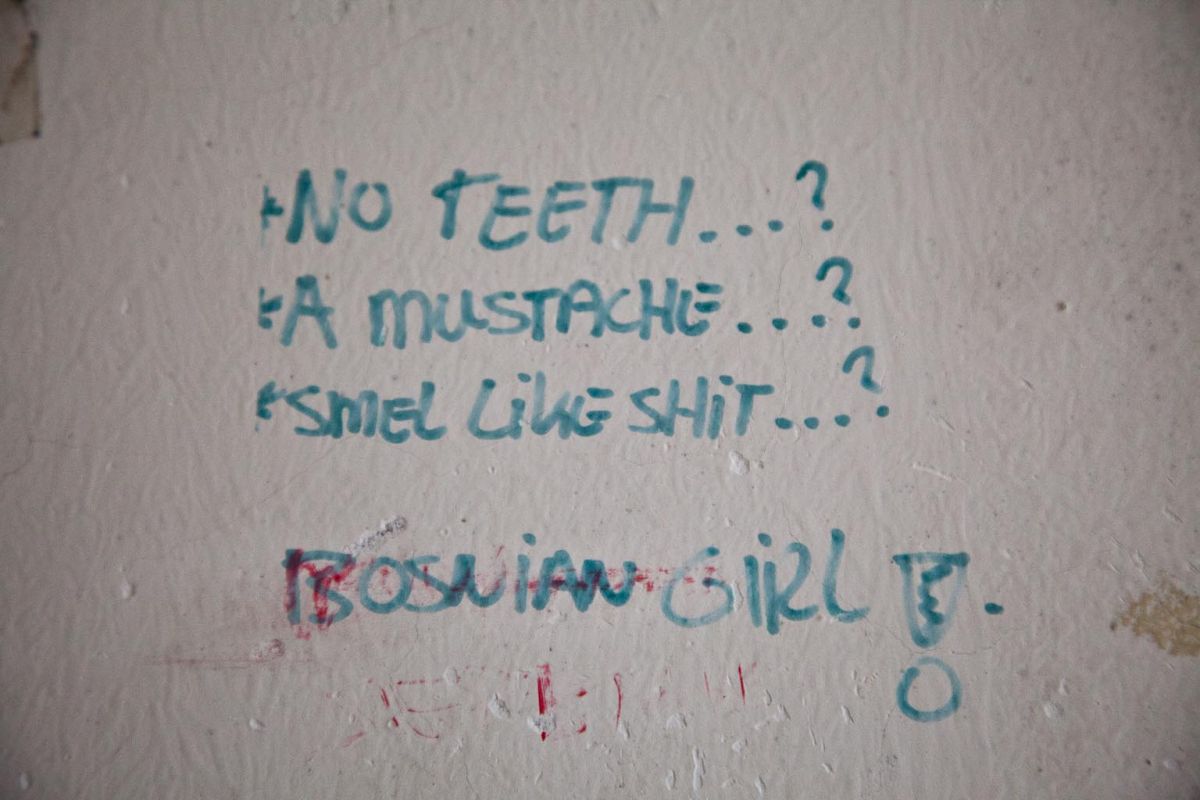 -NO TEETH...?
-A MUSTACHE...?
-SMEL LIKE SHIT...?
BOSNIAN GIRL!.